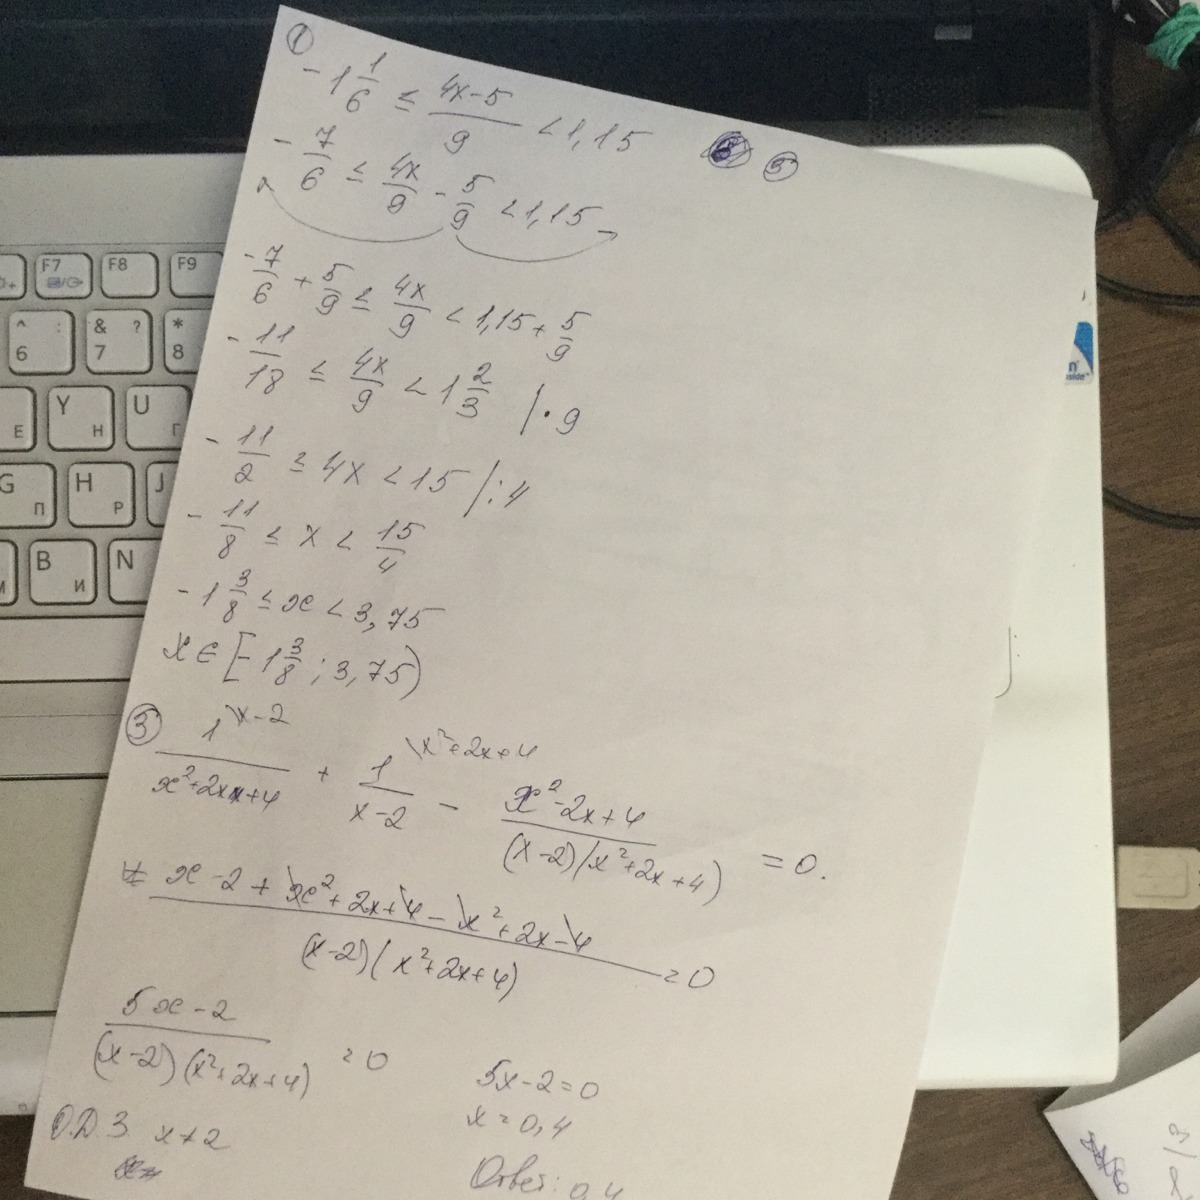 ①
-1 1/6 ≤ (4x-5)/9 < 1,15
⑤
-7/6 ≤ 4x/9 - 5/9 < 1,15
-7/6 + 5/9 ≤ 4x/9 < 1,15 + 5/9
-11/18 ≤ 4x/9 < 1 2/3 | · 9
-11/2 ≤ 4x < 15 | : 4
-11/8 ≤ x < 15/4
-1 3/8 ≤ x < 3,75
x ∈ [-1 3/8 ; 3,75)
③ 1\x-2 / (x²+2x+4) + 1\x²+2x+4 / (x-2) - (x²-2x+4) / ((x-2)(x²+2x+4)) = 0.
(x-2+x²+2x+4-x²+2x-4) / ((x-2)(x²+2x+4)) = 0
(5x-2) / ((x-2)(x²+2x+4)) = 0
5x-2=0
О.Д.З. x≠2
x=0,4
Ответ: 0,4
F7
F8
F9
^ : 6
& ? 7
* 8
Е
Y Н
U Г
G П
H Р
J
B И
N